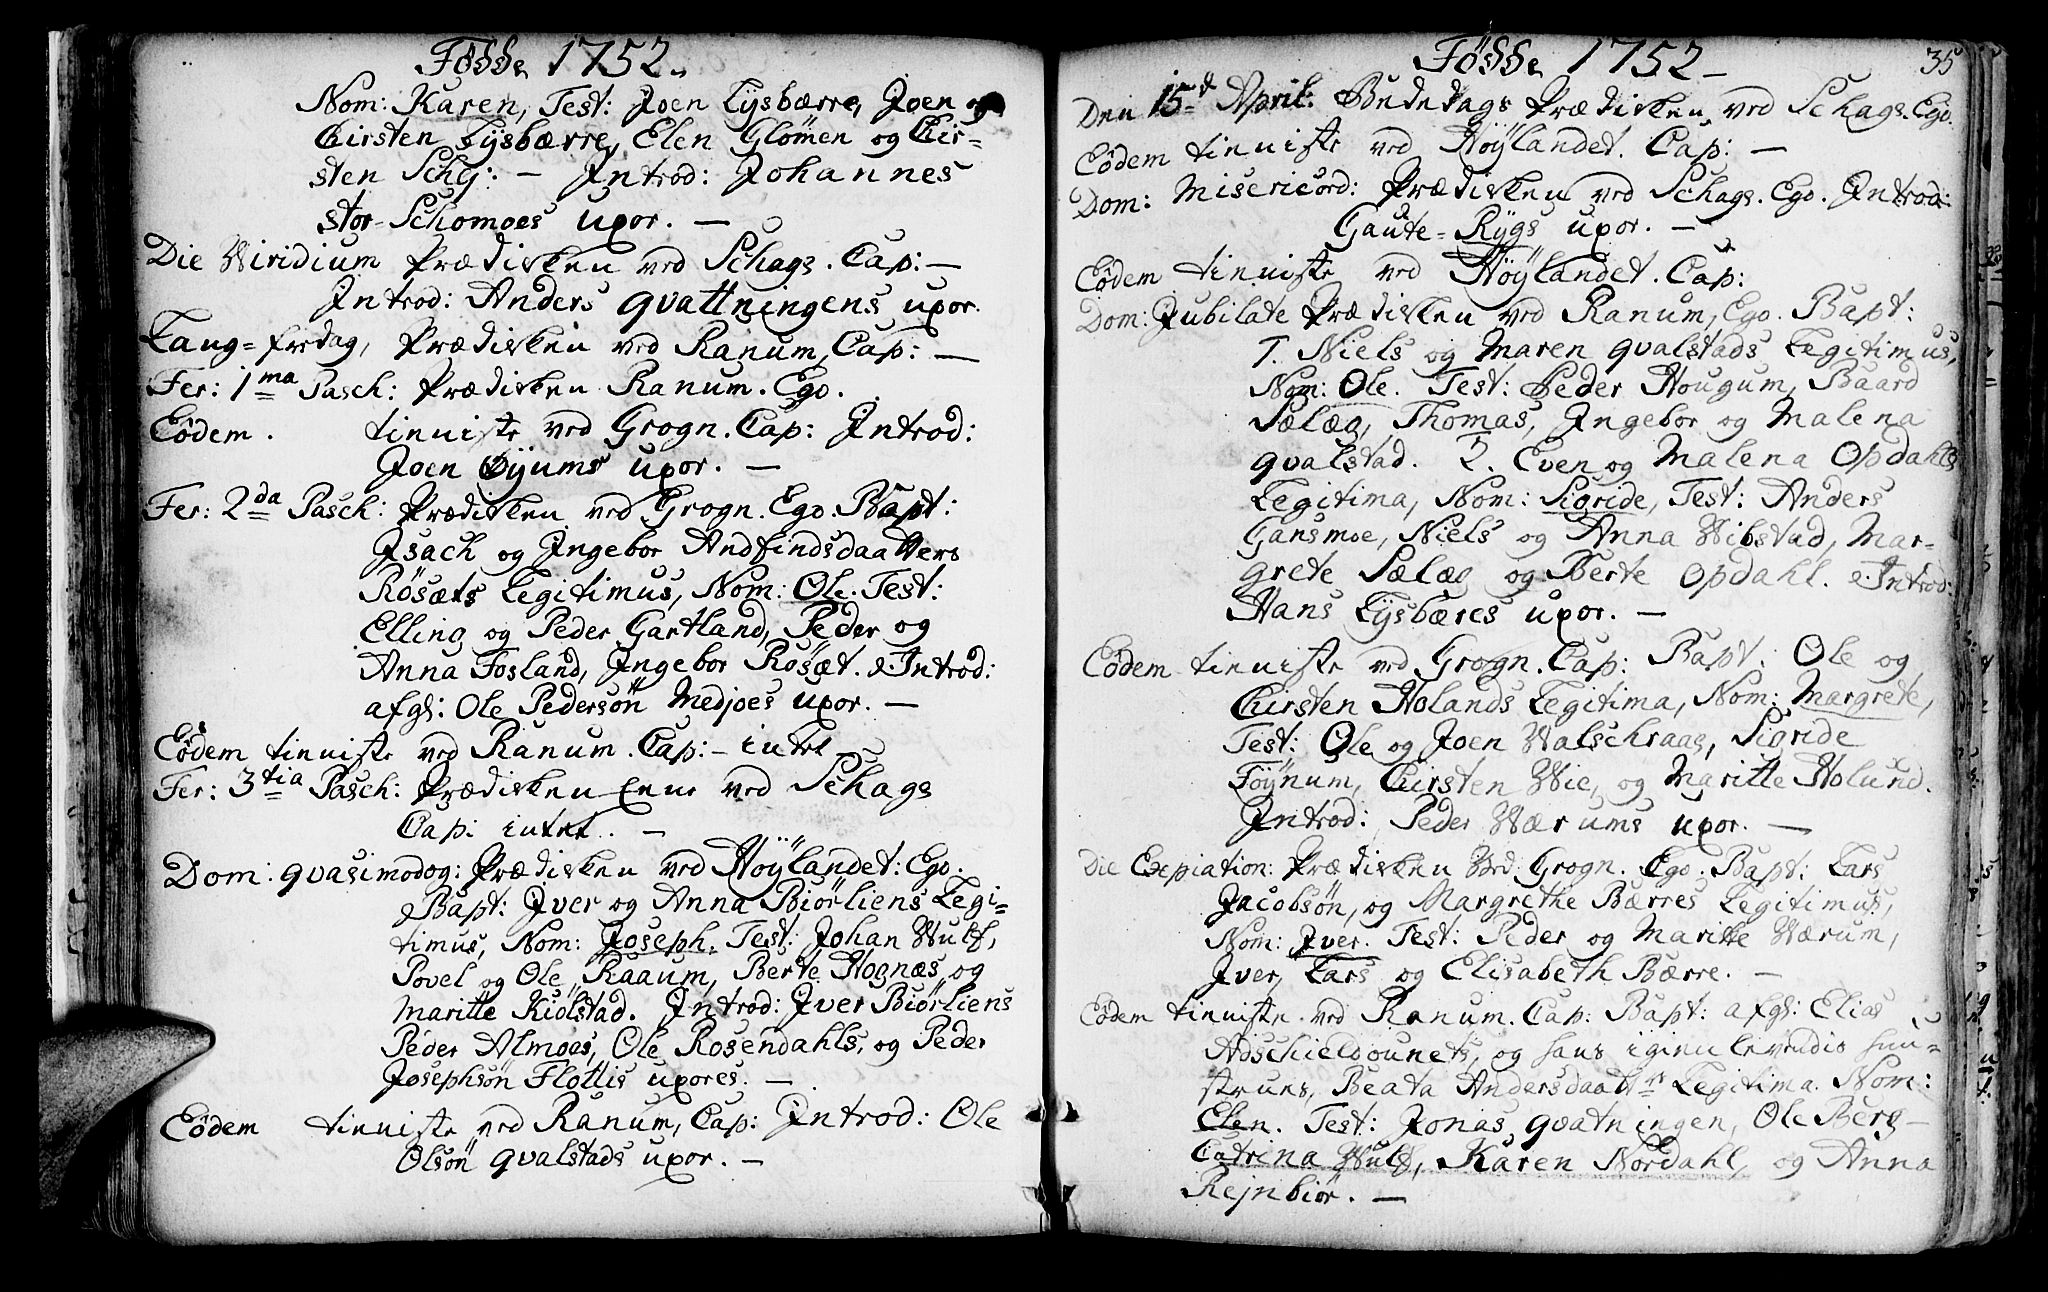 Fosse 1752.
Nom: Karen, Test: Joen Lysbærre, Joen og
Kirsten Lysbærre, Elen Glömen og Kir-
sten Schj: — Introd: Johannes
stor-Schomoes uxor. —
Die Viridium Prædiken ved Schags. Cap: —
Introd: Anders qvattningens uxor.
Lang-fredag, Prædiken ved Ranum, Cap: —
Fer: 1ma Pasch: Prædiken Ranum. Ego.
Eodem. tieniste ved Grogn. Cap: Introd:
Joen Öyums uxor. —
Fer: 2da Pasch: Prædiken ved Grogn. Ego. Bapt:
Isach og Ingebor Andfindsdaatters
Rösæts Legitimus, Nom: Ole. Test:
Elling og Peder Gartland, Peder og
Anna Fosland, Ingebor Rösæt. Introd:
afgl: Ole Pedersön Medjoes uxor. —
Eodem tieniste ved Ranum. Cap: — intet
Fer: 3tia Pasch: Prædiken Eene ved Schage
Cap: intet. —
Dom: qvasimodog: Prædiken ved Höylandet: Ego.
Bapt: Iver og Anna Biörliens Legi-
timus, Nom: Joseph, Test: Johan Wulf,
Povel og Ole Raaum, Berte Hognæs og
Maritte Kiölstad. Introd: Iver Biörliens
Peder Almoes, Ole Rosendahls, og Peder
Josephsön Flottis uxores. —
Eodem tieniste ved Ranum, Cap: Introd: Ole
Olsön qvalstads uxor. —
Fosse 1752 —
35
Den 15d April: Bededags Prædiken ved Schags. Ego.
Eodem tieniste ved Höylandet. Cap: —
Dom: Misericord: Prædiken ved Schags. Ego. Introd:
Gaute-Rygs uxor. —
Eodem tieniste ved Höylandet. Cap:
Dom: Jubilate Prædiken ved Ranum, Ego. Bapt:
1. Niels og Maren qvalstads Legitimus,
Nom: Ole. Test: Peder Hougum, Baard
Sælæg, Thomas, Ingebor og Malena
qvalstad. 2. Even og Malena Opdahls
Legitima, Nom: Sigride, Test: Anders
Gansmoe, Niels og Anna Vibstad, Mar-
grete Sælæg og Berte Opdahl. Introd:
Hans Lysbæres uxor. —
Eodem tieniste ved Grogn. Cap: Bapt: Ole og
Kirsten Holands Legitima, Nom: Margrete,
Test: Ole og Joen Walschraag, Sigride
Föynum, Kirsten Wie, og Maritte Holund.
Introd: Peder Wærums uxor. —
Die Expiation: Prædiken Ved: Grogn. Ego. Bapt: Lars
Jacobsön, og Margrethe Bærres Legitimus,
Nom: Iver. Test: Peder og Maritte Wærum,
Iver, Lars og Elisabeth Bærre. —
Eodem tieniste ved Ranum. Cap: Bapt: afgl: Elias
og hans igienlevendis huu-
struns, Beata Andersdaattrs Legitima. Nom:
Elen. Test: Jonas qvatningen, Ole Berg —
Catrina Wulf, Karen Nordahl, og Anna
Rejnbiör. —